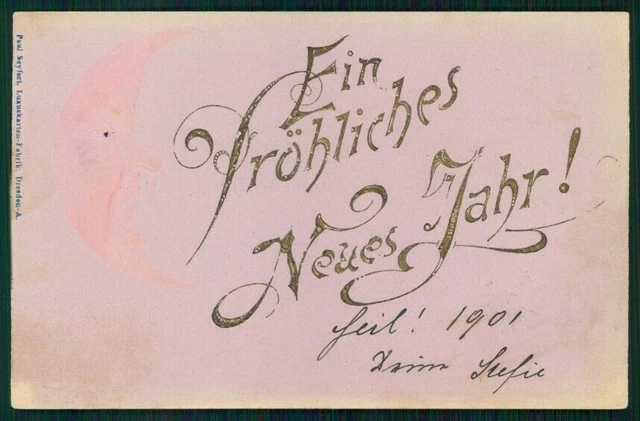 Paul Seyfert, Luxuskarten-Fabrik, Dresden-A.
Ein
Fröhliches
Neues Jahr!
Heil! 1901
Deine Stefie